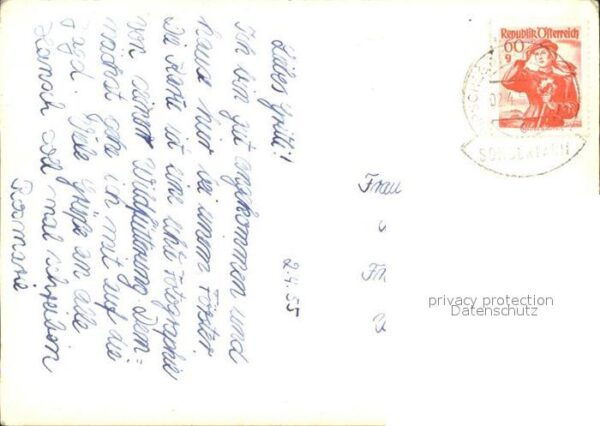 Liebes Gretl!
2.4.55
Ich bin gut angekommen und
hause hier bei einem Förster
Die Karte ist eine echt Fotographie
von seiner Wildfütterung Dem=
nächst gehe ich mit auf die
Jagd. Viele Grüße an alle
Hansi soll mal schreiben
Rosmarie
Frau
Republik Österreich
60
g
privacy protection
Datenschutz